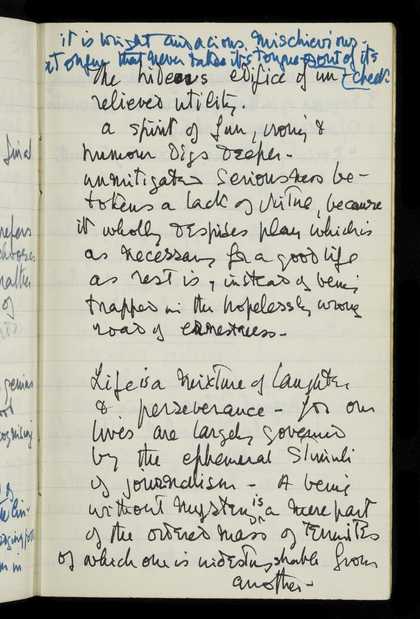 it is bright audacious mischievous -
a tongue that never takes its tongue out of its
cheek
The hideous edifice of un-
relieved utility.
a spirit of fun, irony &
humour digs deeper -
unmitigated seriousness be-
tokens a lack of virtue, because
it wholly despises play which is
as necessary for a good life
as rest is, instead of being
trapped in the hopelessly wrong
road of earnestness -
Life is a mixture of laughter
& perseverance - for our
lives are largely governed
by the ephemeral stimuli
of journalism - A being
without mystery is a mere part
of the ordered mass of termites
of which one is indestinguishable from
another -
final
refers
matter
of
genius
of